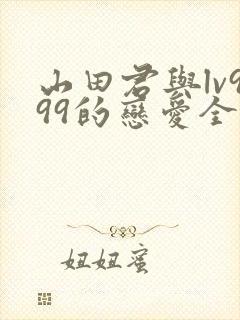 山田君與lv9
99的戀愛全
妞妞蜜